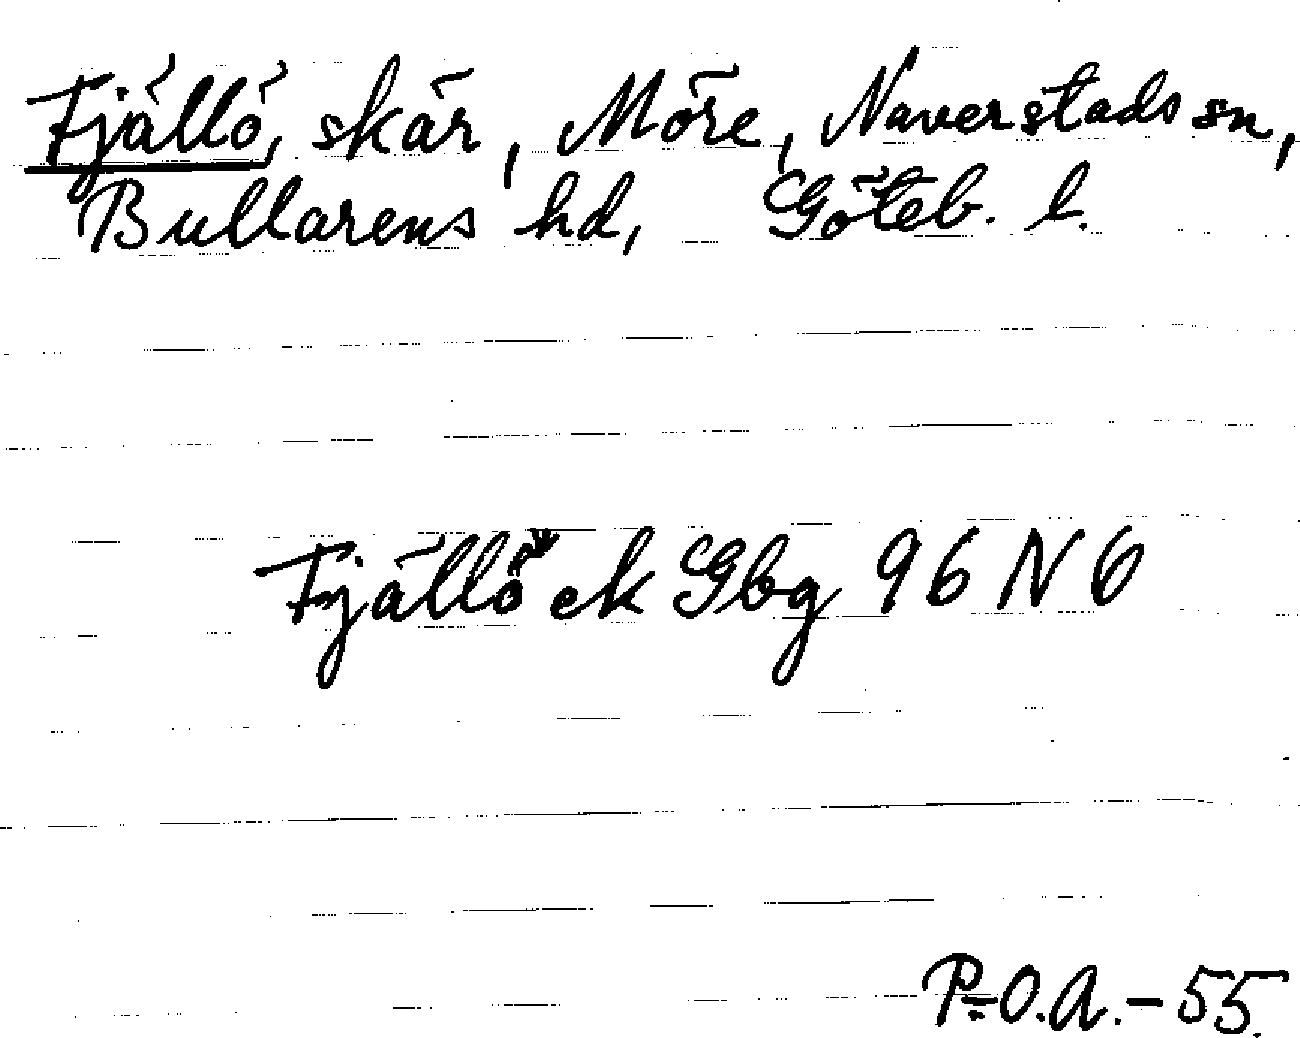 Fjällö, skär, Möre, Naverstads sn,
Bullarens hd, Göteb. l.
Fjällö ek Gbg 96 N Ö
P.-O.A.-55.